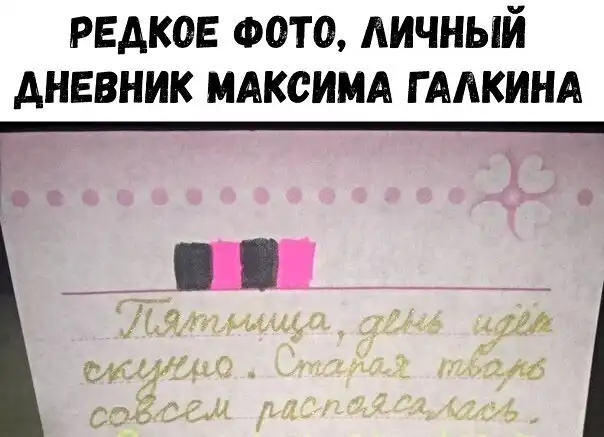 РЕДКОЕ ФОТО, ЛИЧНЫЙ
ДНЕВНИК МАКСИМА ГАЛКИНА
Пятница, день идёт
скучно. Старая тварь
совсем распоясалась.